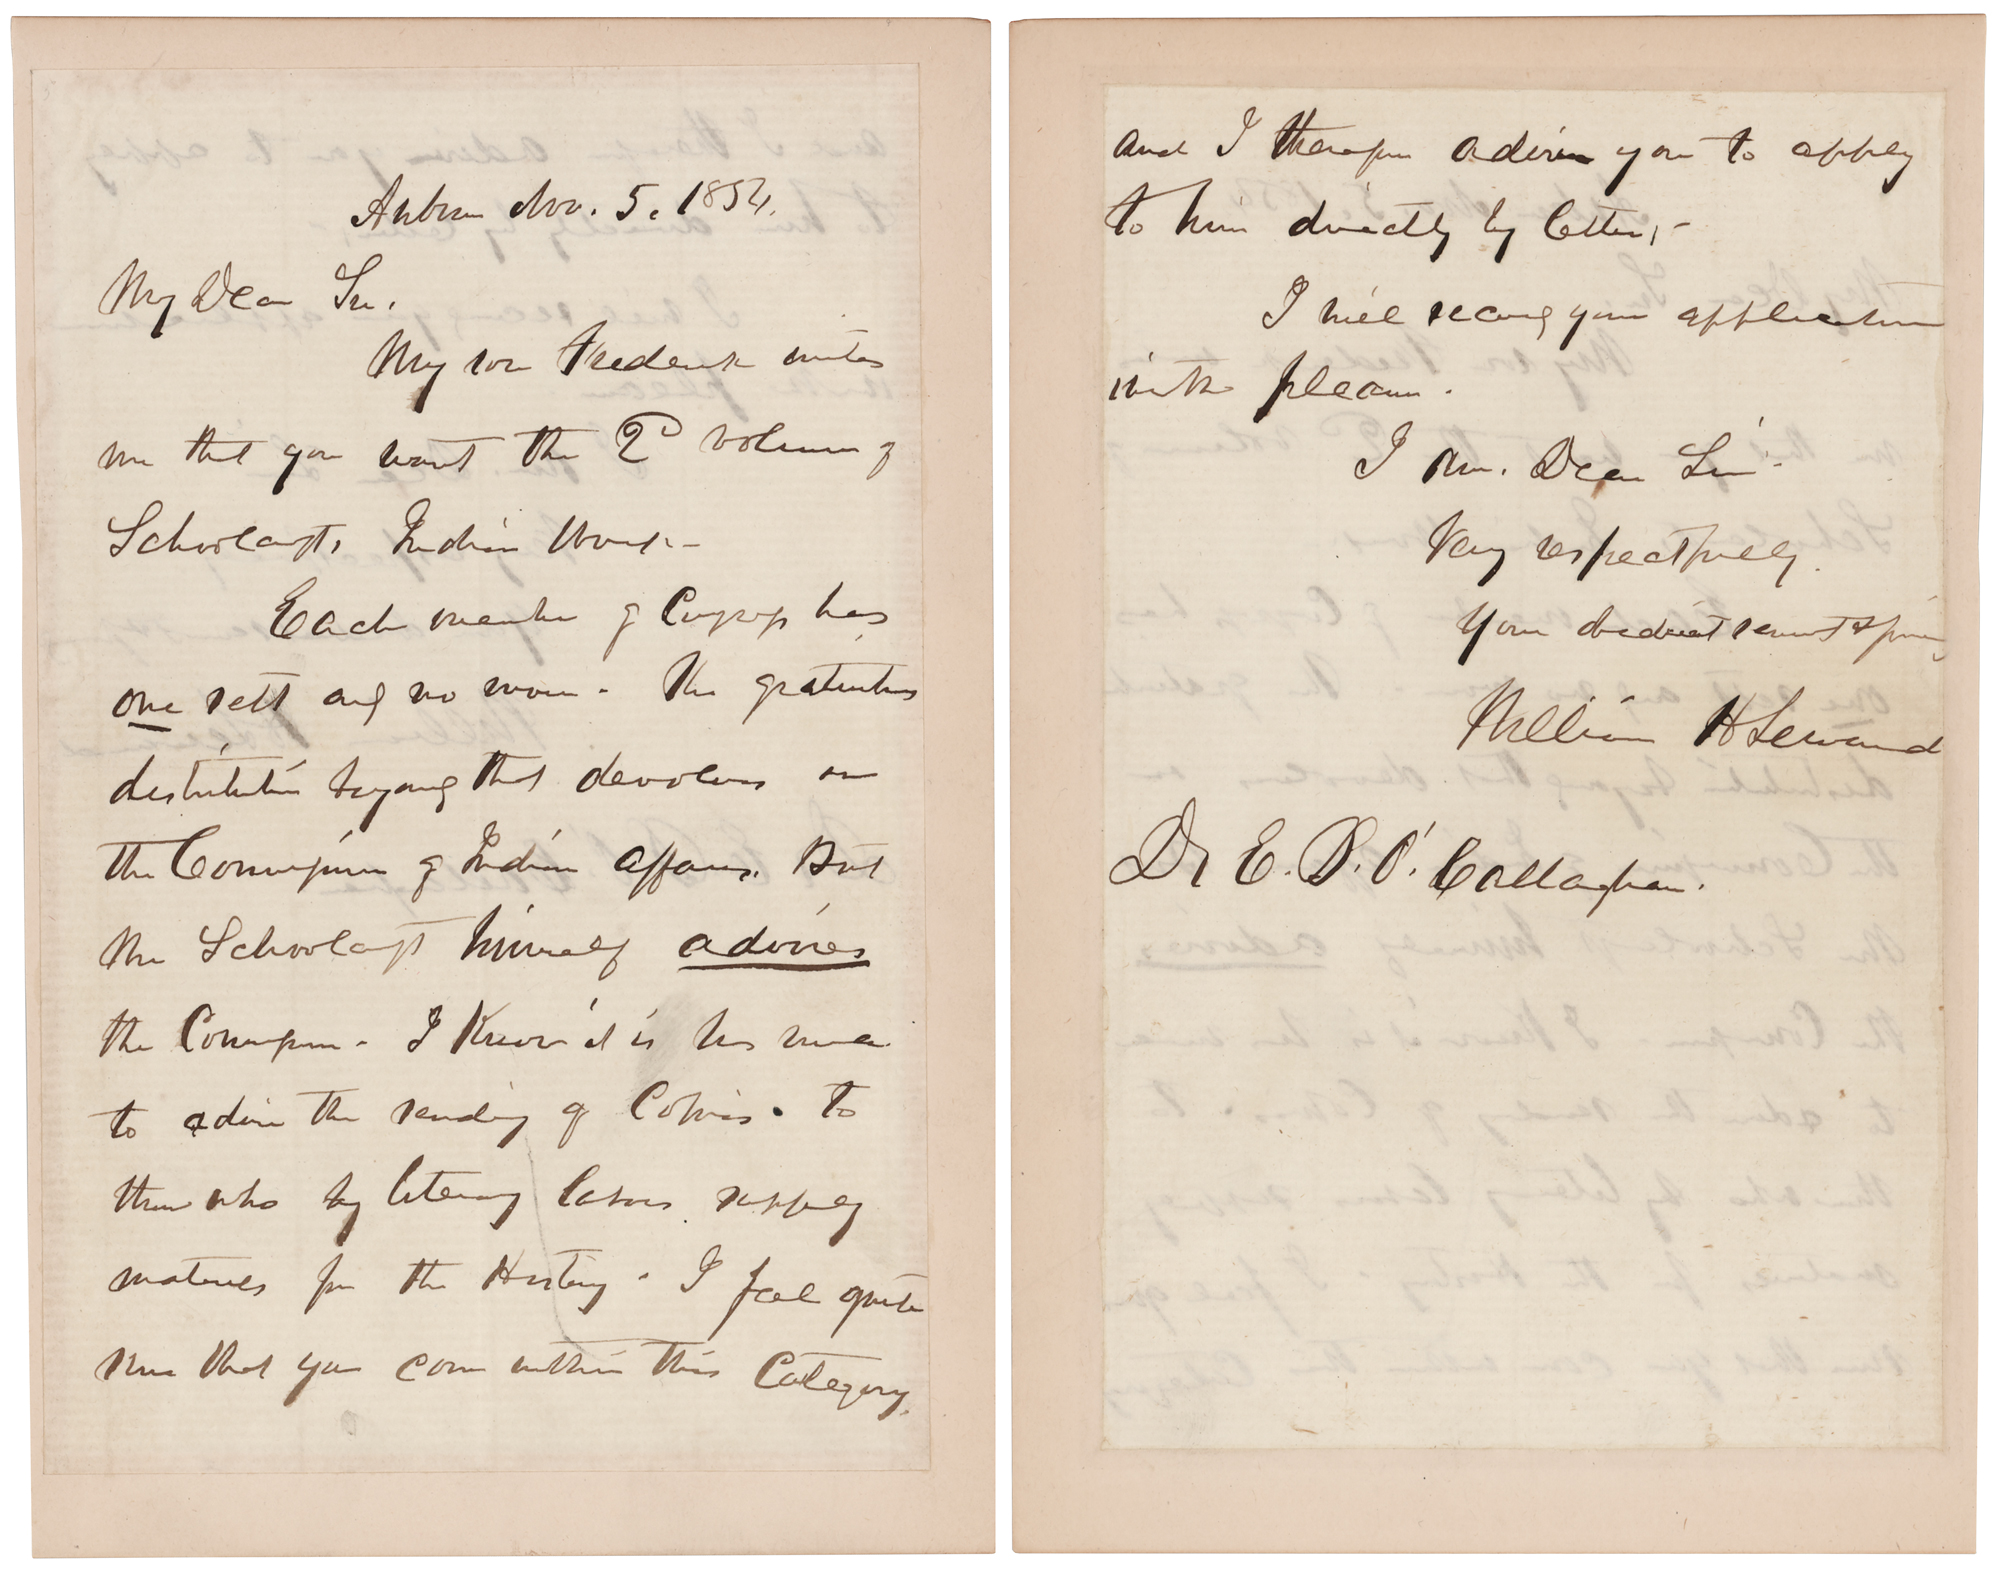 Auburn Nov. 5. 1854.
My Dear Sir.
My son Frederick writes
me that you want the 2d volume of
Schoolcraft's Indian Work -
Each member of Congress has
one sett and no more. The gratuitous
distribution beyond that devolves on
the Commissioner of Indian affairs. But
Mr Schoolcraft himself advises
the Commissioner. I Know it is his
to advise the sending of Copies. to
those who by literary labors supply
materials for the History. I feel quite
sure that you come within this Category.
and I therefore advise you to apply
to him directly by letter, -
I will second your application
with pleasure.
I Am. Dear Sir.
Very respectfully.
Your obedient servant &
William H Seward
Dr E. B. O'Callaghan.